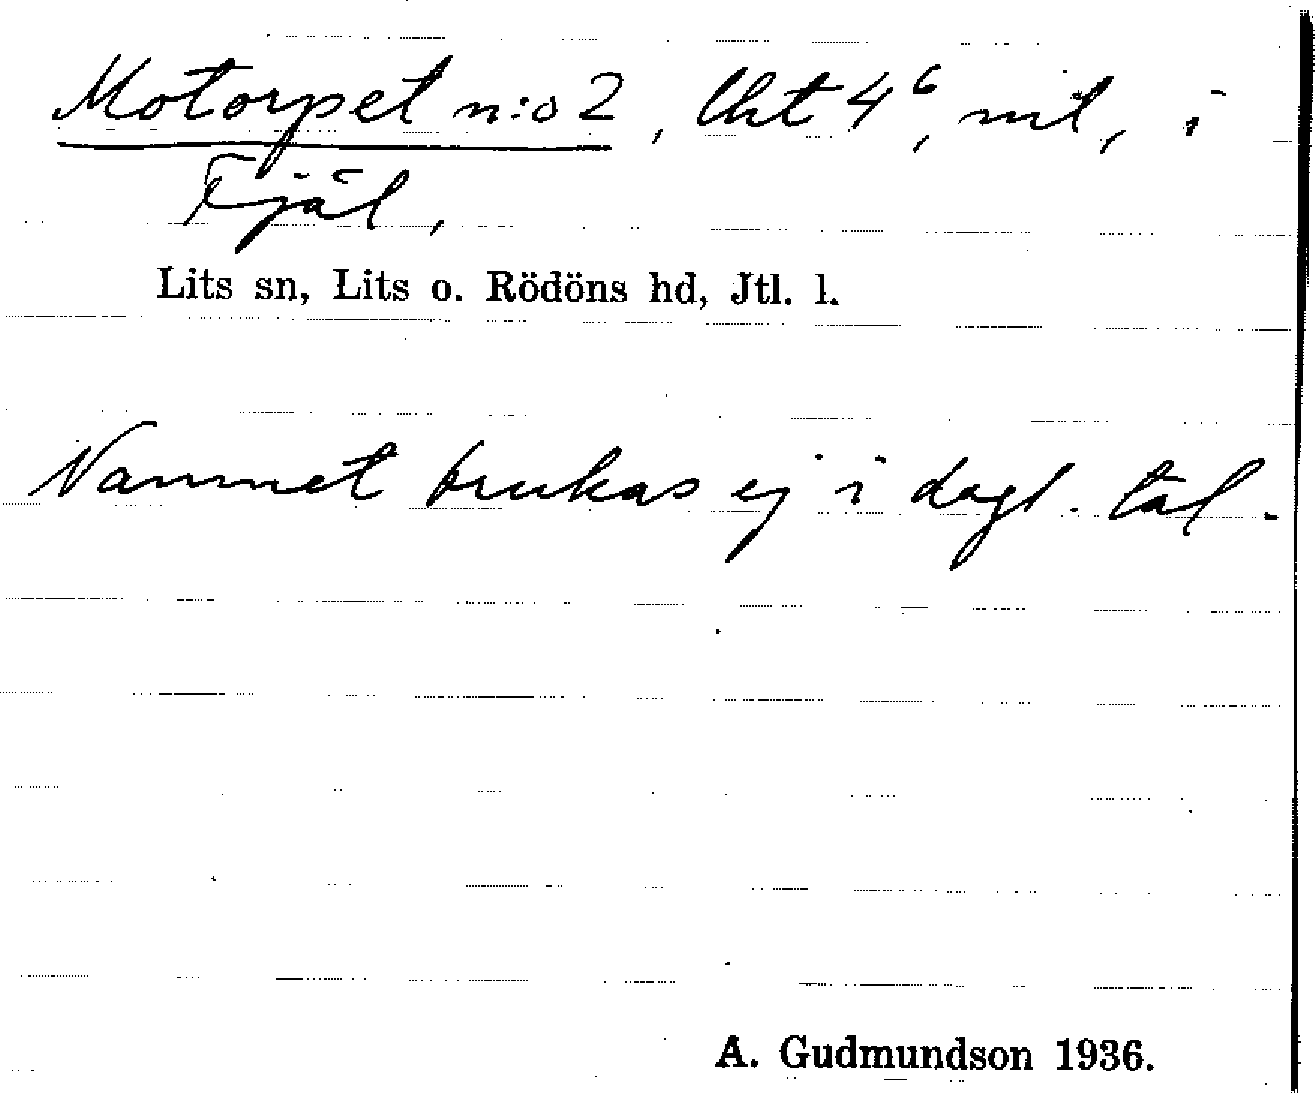 Motorpet n:o 2, Lht 4⁶, nit, i
Fjäl,
Lits sn, Lits o. Rödöns hd, Jtl. l.
Namnet brukas ej i dagl. tal.
A. Gudmundson 1936.